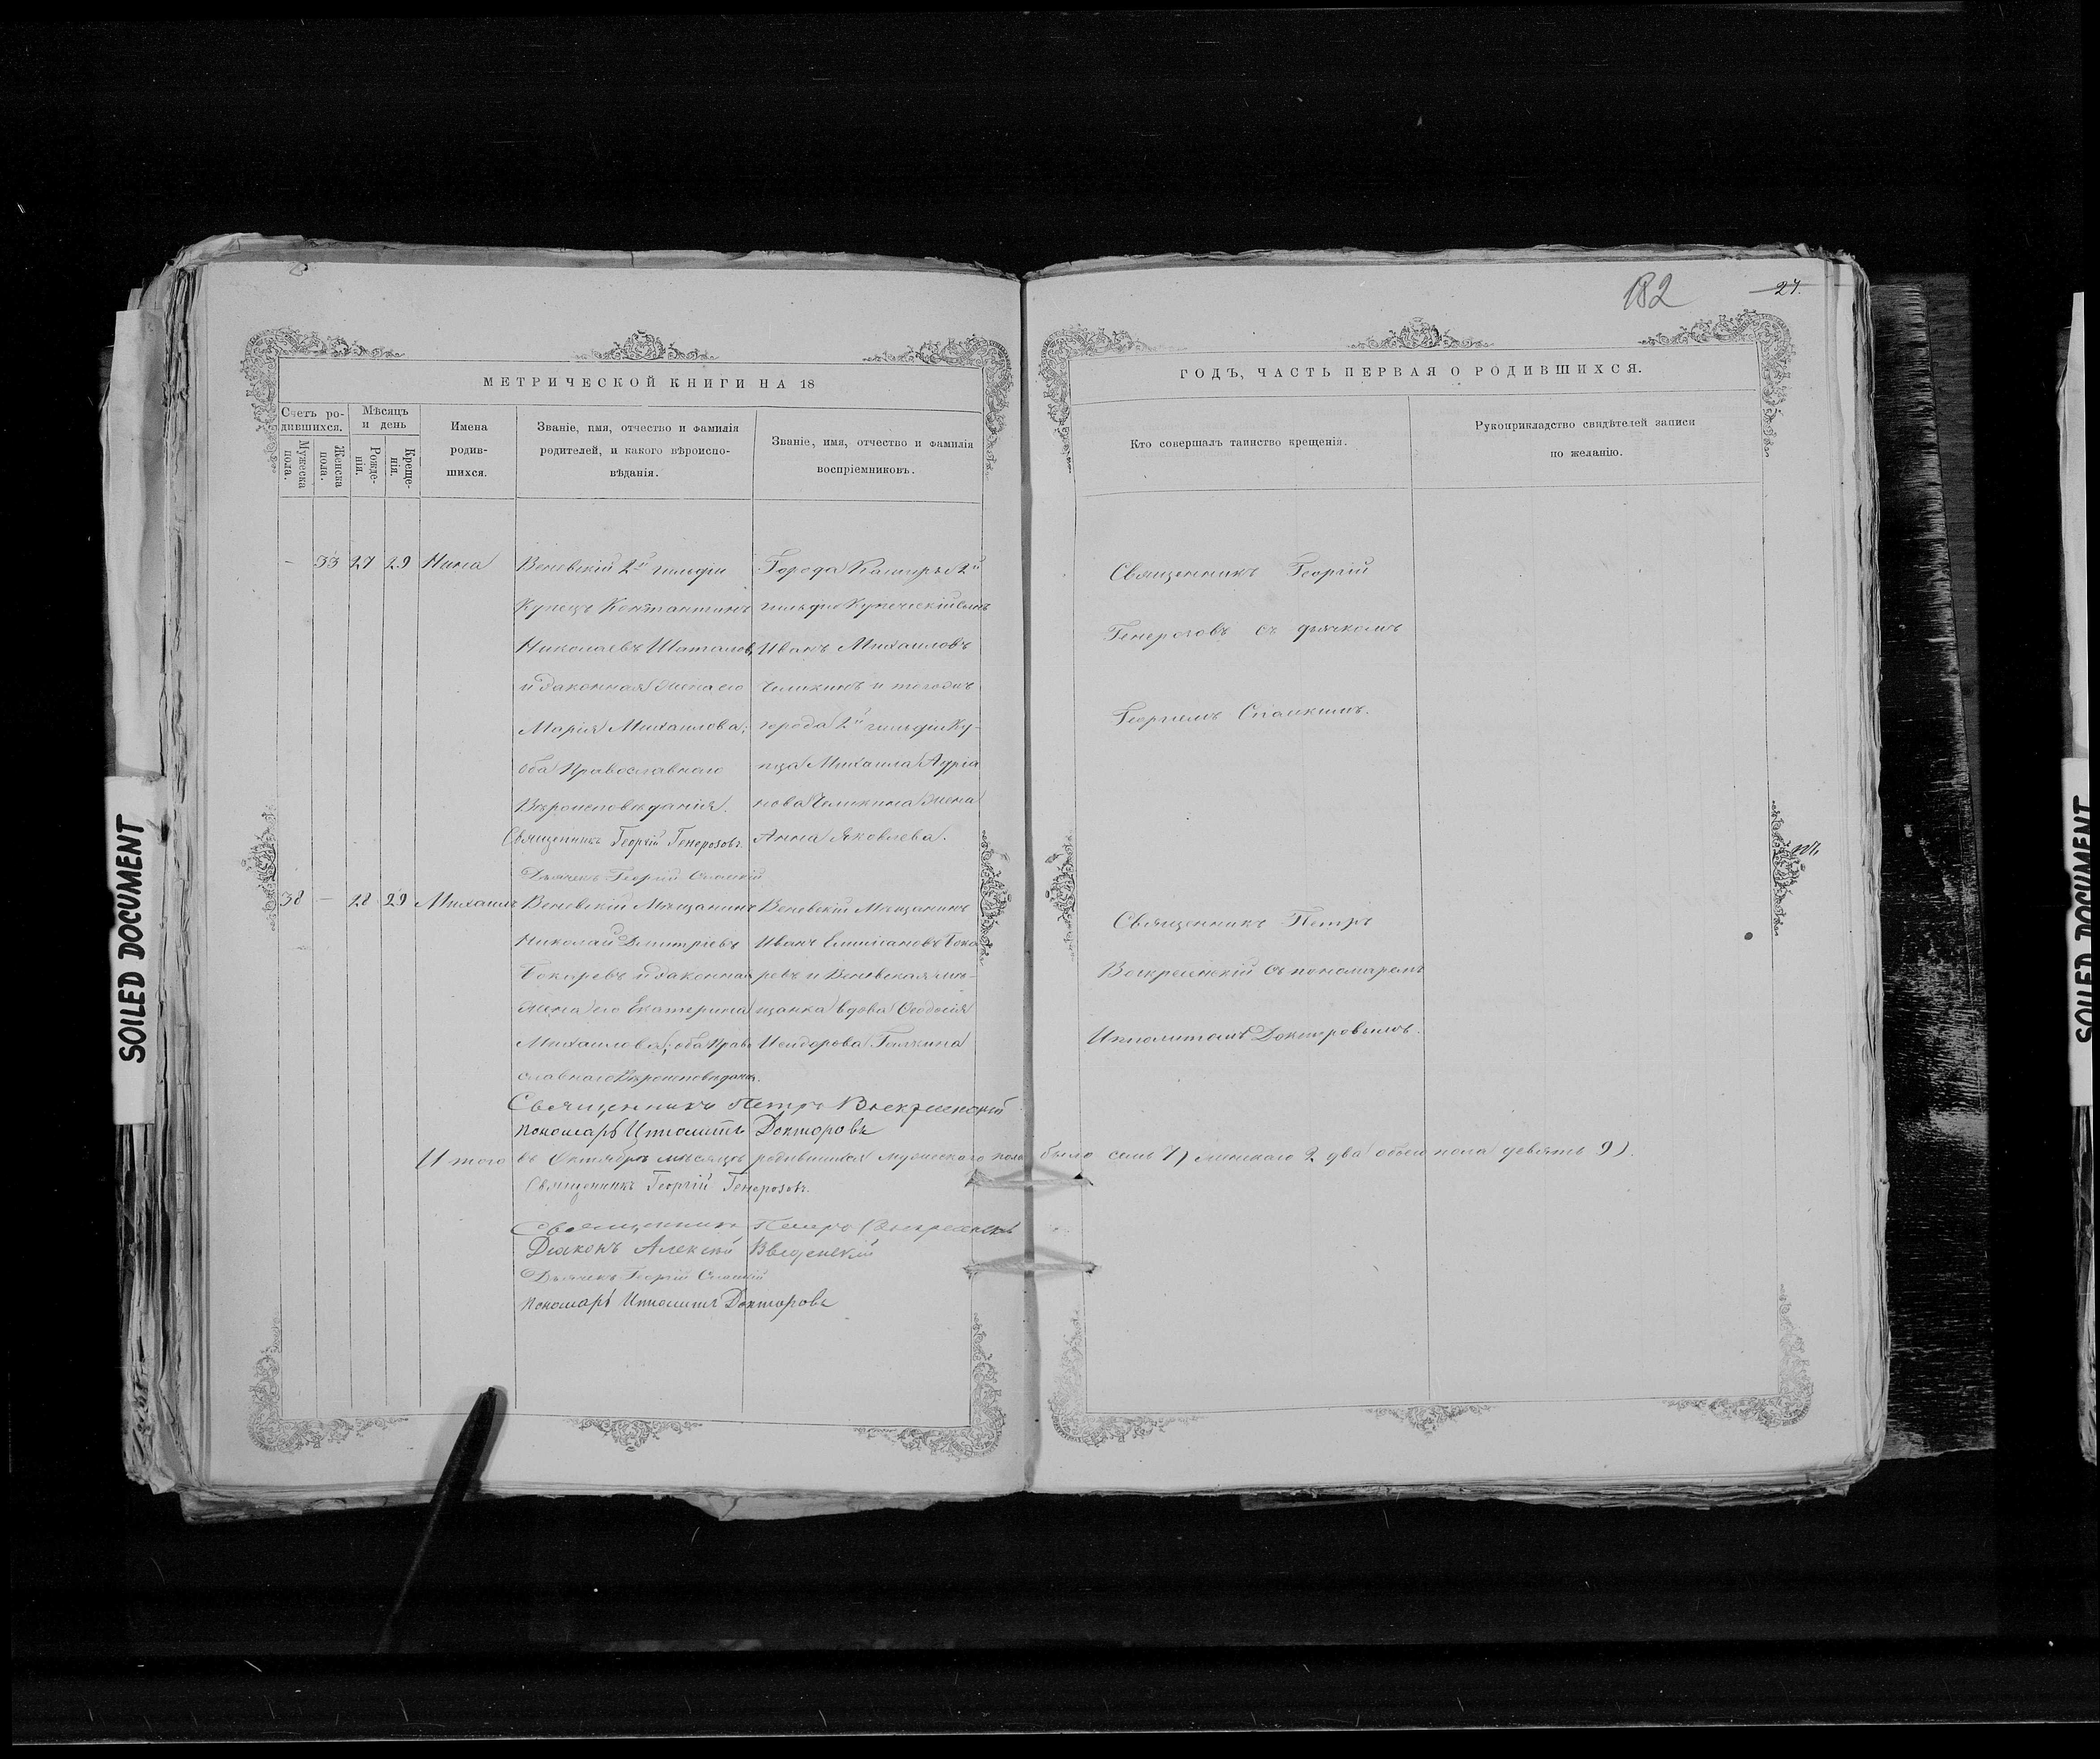 182
27.
МЕТРИЧЕСКОЙ КНИГИ НА 18
ГОДЪ, ЧАСТЬ ПЕРВАЯ О РОДИВШИХСЯ.
Счетъ ро-
дившихся.
Мужеска пола.
Женска пола.
Мѣсяцъ и день
Рожде-
нія.
Креще-
нія.
Имена
родив-
шихся.
Званіе, имя, отчество и фамилія
родителей, и какого вѣроиспо-
вѣданія.
Званіе, имя, отчество и фамилія
воспріемниковъ.
Кто совершалъ таинство крещенія.
Рукоприкладство свидѣтелей записи
по желанію.
- 33 27 29 Нина
Веневскій 2й гильди
Купецъ Константинъ
Николаевъ Шаталовъ
и законная жена его
Марія Михаилова;
оба Православнаго
Вѣроисповѣданія.
Священникъ Георгій Генерозовъ.
Дьячекъ Георгій Спасскій
Города Каширы 2й
гильдіи Купеческій сынъ
Иванъ Михаиловъ
и тогожъ
города 2й гильдіи Ку-
пца Михаила Адріа
нова жена
Анна Яковлева.
Священникъ Георгій
Генерозовъ съ дьячкомъ
Георгіемъ Спасскимъ.
38 - 28 29 Михаилъ
Веневскій Мѣщанинъ
Николай Дмитріевъ
Бокаревъ и законная
жена его Екатерина
Михаилова; оба Право
славнаго Вѣроисповѣданія.
Священникъ Петръ Воскресенскій
Пономарь Ипполитъ Докторовъ
Веневскій Мѣщанинъ
Иванъ Бока
ревъ и Веневская мѣ-
щанка вдова Ѳеодосія
Исидорова
Священникъ Петръ
Воскресенскій съ пономаремъ
Ипполитомъ Докторовымъ.
Итого въ Октябрѣ мѣсяцѣ родившихся мужескаго пола было семь 7) женскаго 2 два обоего пола девять 9).
Священникъ Георгій Генерозовъ.
Священникъ Петръ Воскресенскій
Діаконъ Алексѣй Введенскій
Дьячекъ Георгій Спасскій
Пономарь Ипполитъ Докторовъ
SOILED DOCUMENT
SOILED DOCUMENT